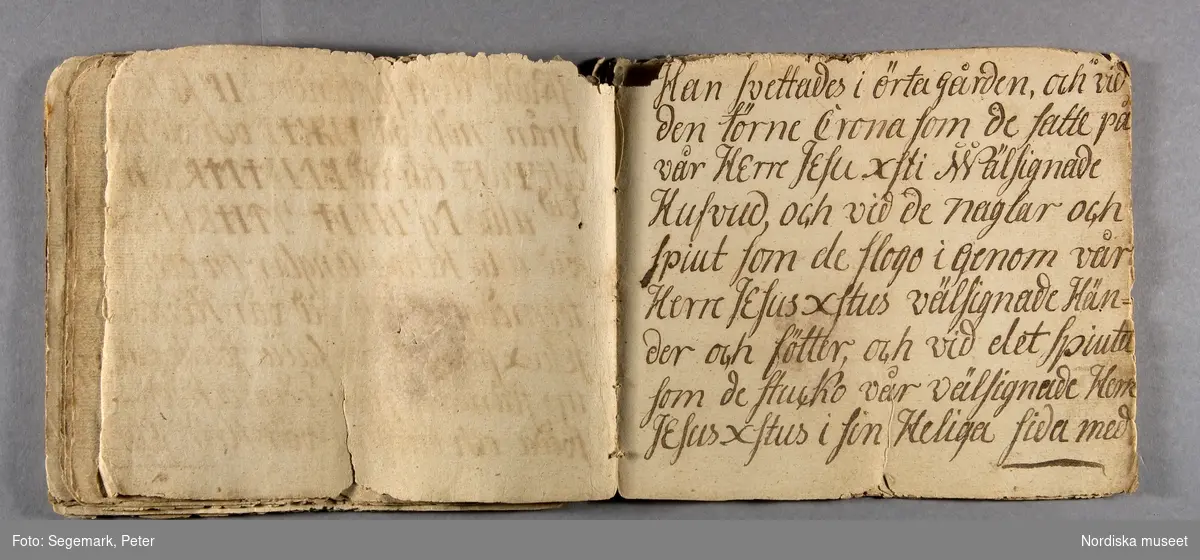 Han svettades i örta gården, och vid
den törne Crona som de satte på
vår HErre JEsu xsti Wälsignade
Hufvud, och vid de naglar och
spiut som de slogo i genom vår
Herre JEsus xstus välsignade Hän-
der och fötter, och vid det spiutet
som de stucko vår välsignade Herre
JEsus xstus i sin Heliga sida med
Foto: Segemark, Peter
Nordiska museet